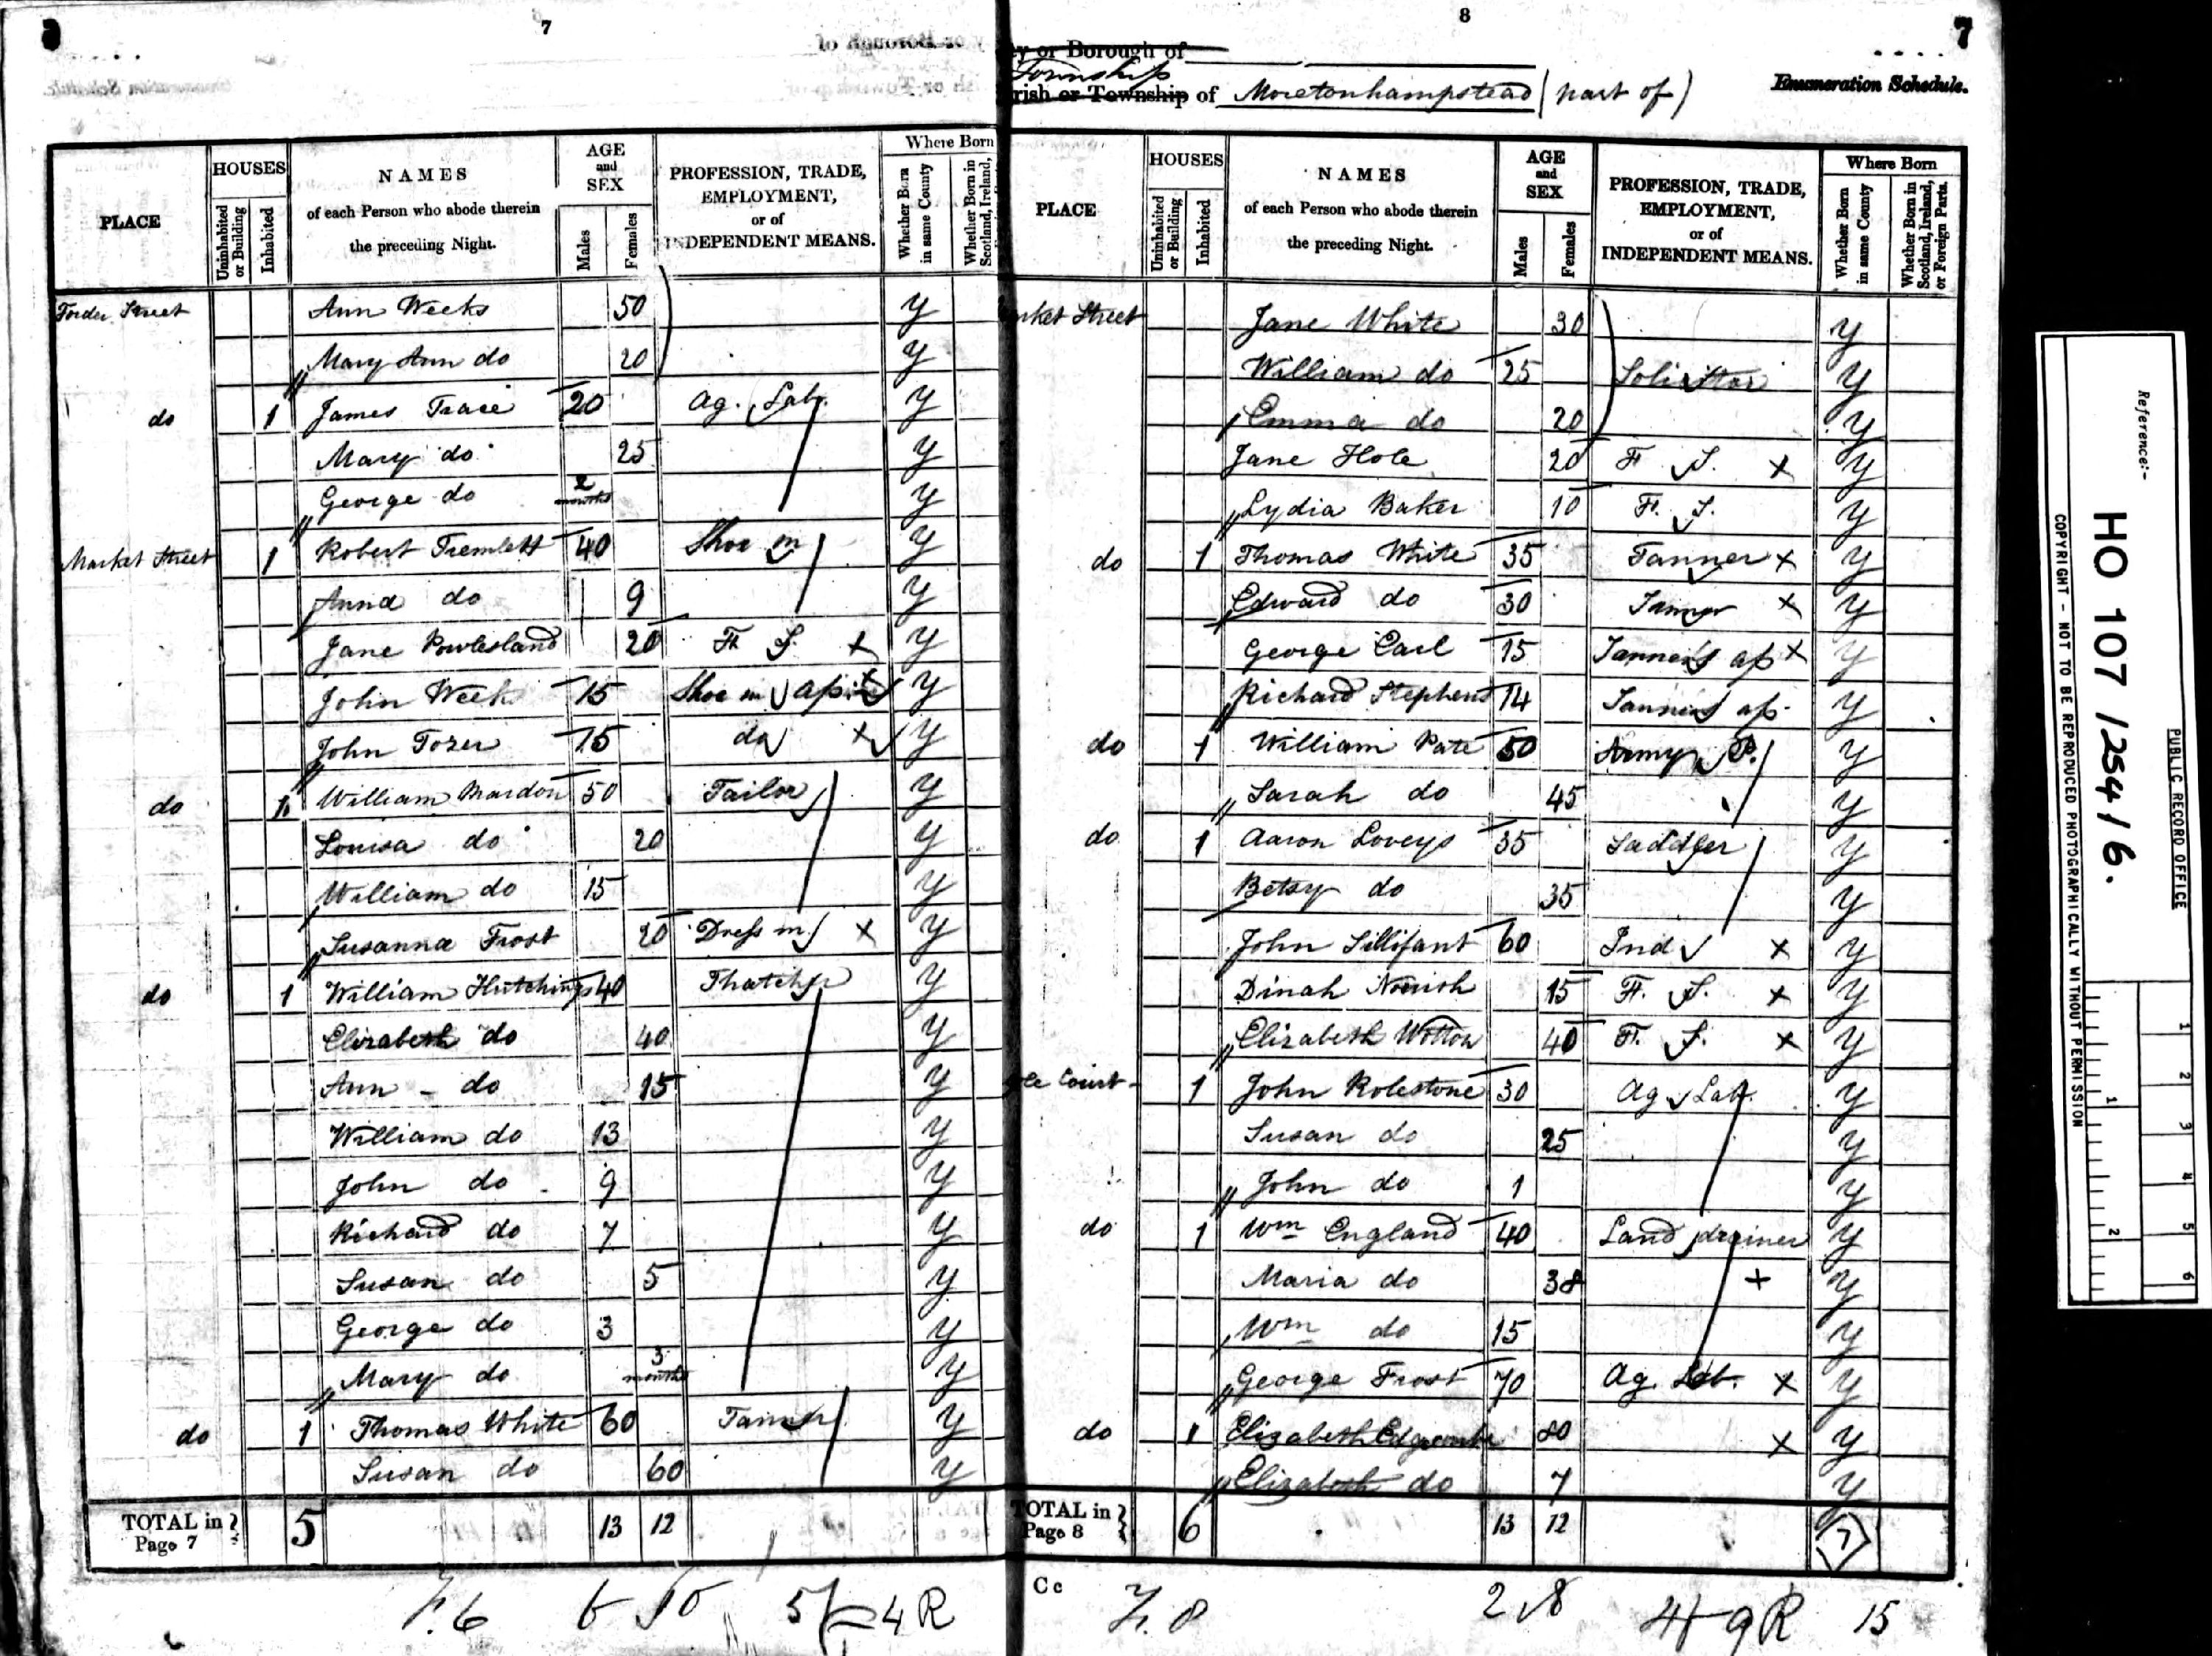 7
PLACE
HOUSES
Uninhabited or Building
Inhabited
NAMES
of each Person who abode therein
the preceding Night.
AGE
and
SEX
Males
Females
PROFESSION, TRADE,
EMPLOYMENT,
or of
INDEPENDENT MEANS.
Where Born
Whether Born in same County
Whether Born in Scotland, Ireland,
Forder Street Ann Weeks 50 y
Mary Ann do 20 y
do 1 James Trace 20 Ag. Lab. y
Mary do 25 y
George do 2 months y
Market Street 1 Robert Tremlett 40 Shoe m y
Anna do 9 y
Jane Powlesland 20 F. S. x y
John Week 15 Shoe m ap x y
John Tozer 15 do x y
do 1 William Mardon 50 Tailor y
Louisa do 20 y
William do 15 y
Susanna Frost 20 Dress m x y
do 1 William Hutchings 40 Thatcher y
Elizabeth do 40 y
Ann - do 15 y
William do 13 y
John do 9 y
Richard do 7 y
Susan do 5 y
George do 3 y
Mary do 3 months y
do 1 Thomas White 60 Tanner y
Susan do 60 y
TOTAL in Page 7 5 13 12
8
7
ty or Borough of
Township
rish or Township of Moretonhampstead (part of)
Enumeration Schedule.
PLACE
HOUSES
Uninhabited or Building
Inhabited
NAMES
of each Person who abode therein
the preceding Night.
AGE
and
SEX
Males
Females
PROFESSION, TRADE,
EMPLOYMENT,
or of
INDEPENDENT MEANS.
Where Born
Whether Born in same County
Whether Born in Scotland, Ireland, or Foreign Parts.
rket Street Jane White 30 y
William do 25 Solicitor y
Emma do 20 y
Jane Hole 20 F. S. x y
Lydia Baker 10 F. S. y
do 1 Thomas White 35 Tanner x y
Edward do 30 Tanner x y
George Earl 15 Tanner's ap x y
Richard Stephens 14 Tanner's ap. y
do 1 William Pate 50 Army P. y
Sarah do 45 y
do 1 Aaron Loveys 35 Saddler y
Betsy do 35 y
John Sillifant 60 Ind x y
Dinah Norrish 15 F. S. x y
Elizabeth Wotton 40 F. S. x y
Court - 1 John Rolestone 30 Ag. Lab. y
Susan do 25 y
John do 1 y
do 1 Wm England 40 Land drainer y
Maria do 38 + y
Wm do 15 y
George Frost 70 Ag. Lab. x y
do 1 Elizabeth Edgcombe 80 x y
Elizabeth do 7 y
TOTAL in Page 8 6 13 12 7
Cc
4 R
9 R 15
Reference:-
HO 107/254/6.
PUBLIC RECORD OFFICE
COPYRIGHT - NOT TO BE REPRODUCED PHOTOGRAPHICALLY WITHOUT PERMISSION
1 2 3 4 5 6
1 2